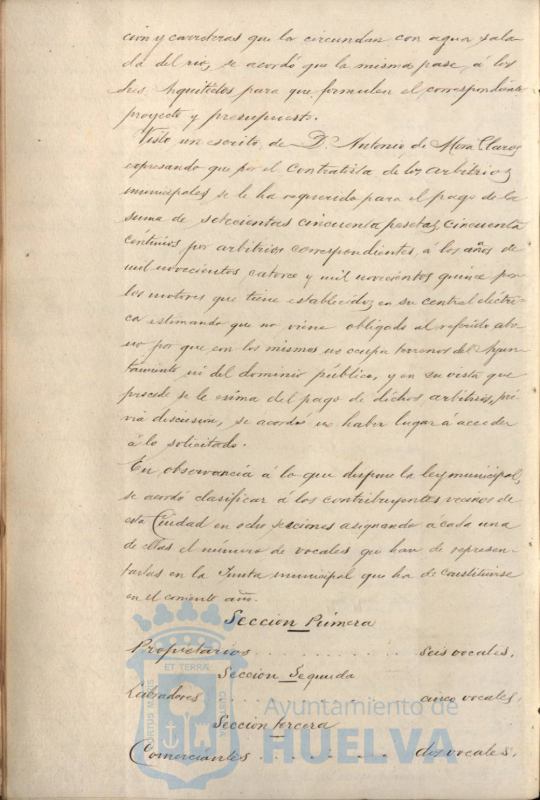 cion y carreteras que la circundan con agua sala-
da del rio, se acordó que la misma pase á los
Sres Arquitectos para que formulen el correspondiente
proyecto y presupuesto.
Visto un escrito de D. Antonio de Mora Claros
expresando que por el Contratista de los arbitrios
municipales se le ha requerido para el pago de la
suma de setecientas cincuenta pesetas, cincuenta
céntimos por arbitrios correspondientes á los años de
mil novecientos catorce y mil novecientos quince por
los motores que tiene establecidos en su central eléctri-
ca estimando que no viene obligado al referido abo-
no por que con los mismos no ocupa terrenos del Ayun-
tamiento ni del dominio público, y en su vista que
procede se le exima del pago de dichos arbitrios, pré-
via discusion, se acordó no haber lugar á acceder
á lo solicitado.
En observancia á lo que dispone la ley municipal,
se acordó clasificar á los contribuyentes vecinos de
esta Ciudad en ocho secciones asignando a cada una
de ellas el número de vocales que han de represen-
tarlas en la Junta municipal que ha de constituirse
en el corriente año.
Seccion Primera
Propietarios . . . . . . . . . . seis vocales.
Seccion Segunda
Labradores . . . . . . . . . . cinco vocales.
Seccion tercera
Comerciantes . . . . . . . . . dos vocales.
ET TERRÆ
PORTUS MARIS
CUSTODIA
Ayuntamiento de
HUELVA